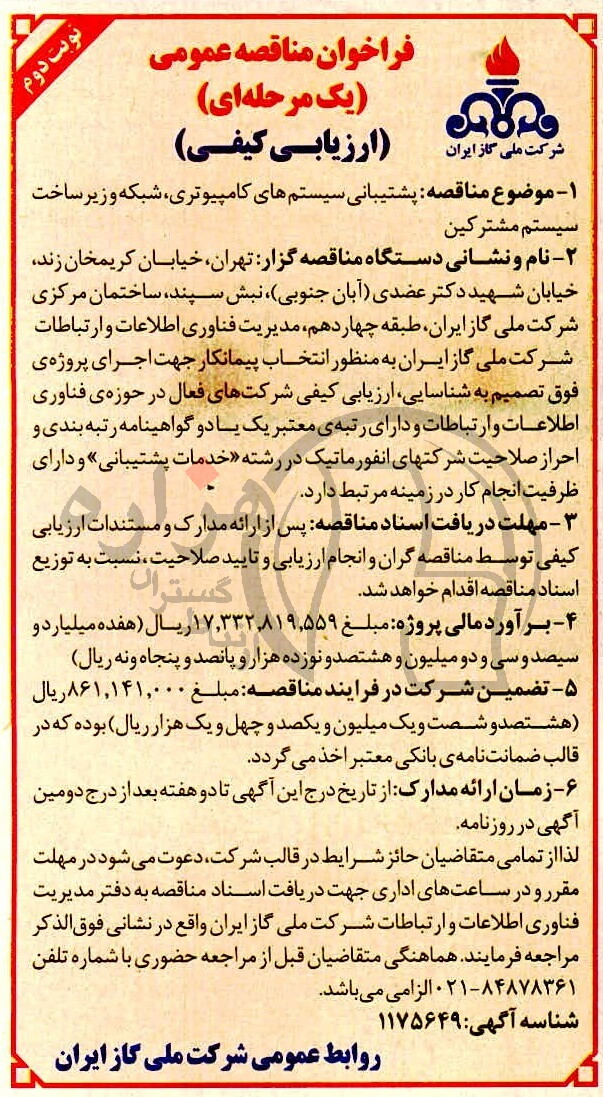 نوبت دوم
فراخوان مناقصه عمومی
(یک مرحله‌ای)
(ارزیابی کیفی)
شرکت ملی گاز ایران
۱- موضوع مناقصه: پشتیبانی سیستم‌های کامپیوتری، شبکه و زیرساخت
سیستم مشترکین
۲- نام و نشانی دستگاه مناقصه گزار: تهران، خیابان کریمخان زند،
خیابان شهید دکتر عضدی (آبان جنوبی)، نبش سپند، ساختمان مرکزی
شرکت ملی گاز ایران، طبقه چهاردهم، مدیریت فناوری اطلاعات و ارتباطات
شرکت ملی گاز ایران به منظور انتخاب پیمانکار جهت اجرای پروژه‌ی
فوق تصمیم به شناسایی، ارزیابی کیفی شرکت‌های فعال در حوزه‌ی فناوری
اطلاعات و ارتباطات و دارای رتبه‌ی معتبر یک یا دو گواهینامه رتبه بندی و
احراز صلاحیت شرکتهای انفورماتیک در رشته «خدمات پشتیبانی» و دارای
ظرفیت انجام کار در زمینه مرتبط دارد.
۳- مهلت دریافت اسناد مناقصه: پس از ارائه مدارک و مستندات ارزیابی
کیفی توسط مناقصه گران و انجام ارزیابی و تایید صلاحیت، نسبت به توزیع
اسناد مناقصه اقدام خواهد شد.
۴- برآورد مالی پروژه: مبلغ ۱۷,۳۳۲,۸۱۹,۵۵۹ ریال (هفده میلیارد و
سیصد و سی و دو میلیون و هشتصد و نوزده هزار و پانصد و پنجاه و نه ریال)
۵- تضمین شرکت در فرایند مناقصه: مبلغ ۸۶۱,۱۴۱,۰۰۰ ریال
(هشتصد و شصت و یک میلیون و یکصد و چهل و یک هزار ریال) بوده که در
قالب ضمانت‌نامه‌ی بانکی معتبر اخذ می گردد.
۶- زمان ارائه مدارک: از تاریخ درج این آگهی تا دو هفته بعد از درج دومین
آگهی در روزنامه.
لذا از تمامی متقاضیان حائز شرایط در قالب شرکت، دعوت می شود در مهلت
مقرر و در ساعت‌های اداری جهت دریافت اسناد مناقصه به دفتر مدیریت
فناوری اطلاعات و ارتباطات شرکت ملی گاز ایران واقع در نشانی فوق‌الذکر
مراجعه فرمایند. هماهنگی متقاضیان قبل از مراجعه حضوری با شماره تلفن
۸۴۸۷۸۳۶۱-۰۲۱ الزامی می باشد.
شناسه آگهی: ۱۱۷۵۶۴۹
روابط عمومی شرکت ملی گاز ایران